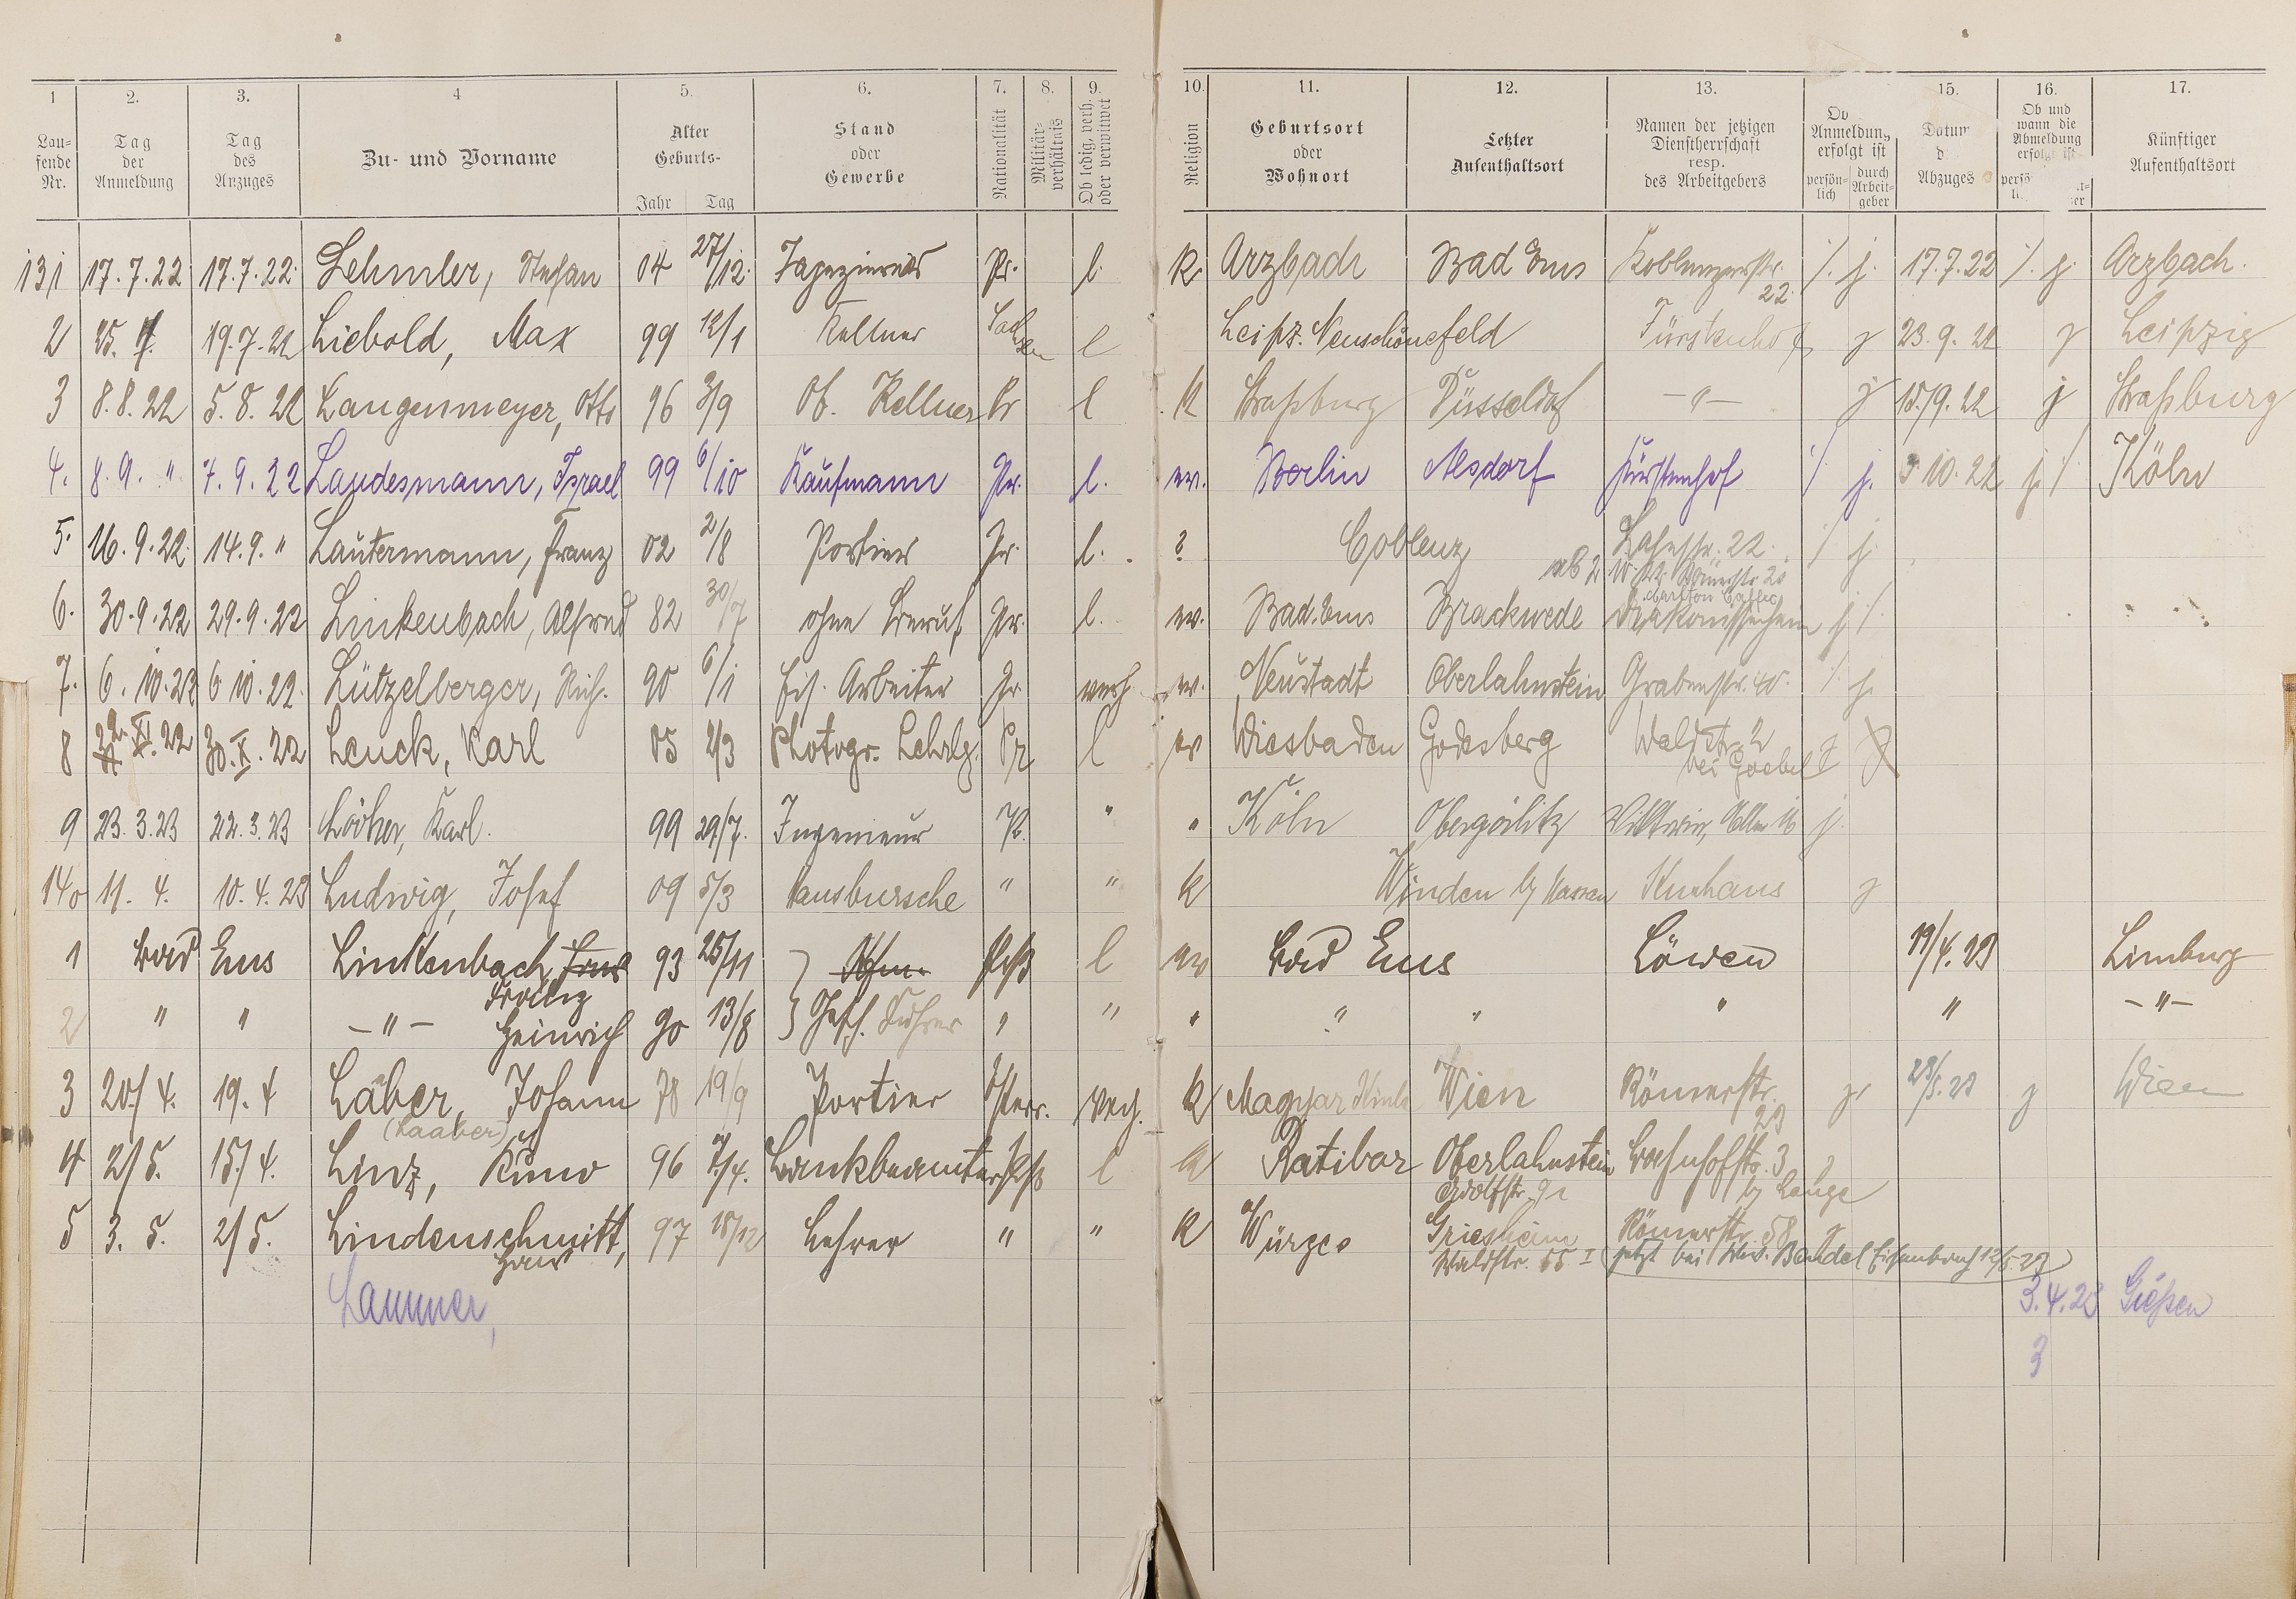 1 2. 3. 4 5. 6. 7. 8. 9. 10. 11. 12. 13. 15. 16. 17.
Lau-
fende
Nr.
Tag
der
Anmeldung
Tag
des
Anzuges
Zu- und Vorname
Alter
Geburts-
Jahr Tag
Stand
oder
Gewerbe
Nationalität
Militär-
verhältnis
Ob ledig, verh.
oder verwitwet
Religion
Geburtsort
oder
Wohnort
Letzter
Aufenthaltsort
Namen der jetzigen
Dienstherrschaft
resp.
des Arbeitgebers
Ob
Anmeldung
erfolgt ist
persön-
lich
durch
Arbeit-
geber
Datum
d
Abzuges
Ob und
wann die
Abmeldung
erfolgt ist
Künftiger
Aufenthaltsort
131 17.7.22 17.7.22. Lehmler, Stefan 04 27/12. Tapezierer Pr. l. K Arzbach Bad Ems Koblenzerstr. 22. /. j. 17.7.22 /. j. Arzbach.
2 25. 7. 19.7.22 Liebold, Max 99 12/1 Kellner Sachsen l Leipz. Neuschönefeld Fürstenhof j 23.9.22 j Leipzig
3 8.8.22 5.8.22 Langenmeyer, Otto 96 3/9 Ob. Kellner Pr l K Straßburg Düsseldorf -"- j 15/9.22 j Straßburg
4. 8.9. " 7.9.22 Landesmann, Israel 99 6/10 Kaufmann Pr. l. ev. Berlin Alsdorf Fürstenhof / j. 3 10.22 j. / Köln
5. 16.9.22. 14.9. " Lautermann, Franz 02 2/8 Portier Pr. l. ? Coblenz Lahnstr. 22. / j.
ab 2. 10. 22. Römerstr. 20
6. 30.9.22 29.9.22 Linkenbach, Alfred 82 30/7 ohne Beruf Pr. l. ev. Bad. Ems Brackwede Diakonissenheim j /.
7. 6.10.22 6 10.22. Lützelberger, Rich. 90 6/1 Eis. Arbeiter Pr. verh. ev. Neustadt Oberlahnstein Grabenstr. 40. /. j.
8 22. XI. 22 30. X. 22 Leuck, Karl 05 2/3 Photogr. Lehrlg. Pr l ev Wiesbaden Godesberg Waldstr. 2
bei Goebel
9 23.3.23 22.3.23 Löcher, Karl. 99 29/7. Ingenieur Pr. " " Köln Obergörlitz j.
140 11. 4. 10.4.23 Ludwig, Josef 09 5/3 Hausbursche " " K Winden b/ Nassau Kurhaus j
1 Bad Ems Linkenbach, 93 25/11 Kfm. Preß l ev Bad Ems Löwen 19/4.23 Limburg
2 " " -"- Heinrich 90 13/8 " " " " " " " -"-
3 20/4. 19.4 Laber, Johann 78 19/9 Portier Österr. verh. K Magyar Wien Römerstr. 29 j 28/5.23 j Wien
(Laaber)
4 2/5. 15/4. Linz, Kuno 96 7/4. Bankbeamter Pß l K Ratibor Oberlahnstein Bahnhofstr. 3
Adolfstr. b/ Lange
5 3. 5. 2/5. Lindenschmitt, 97 15/12 Lehrer " " K Würges Griesheim Römerstr. 58 j
Hans Waldstr. 55 I (jetzt bei Wwe. Bandel Eisenbach 12/5.23)
Lammer, 3.4.23 Gießen
3